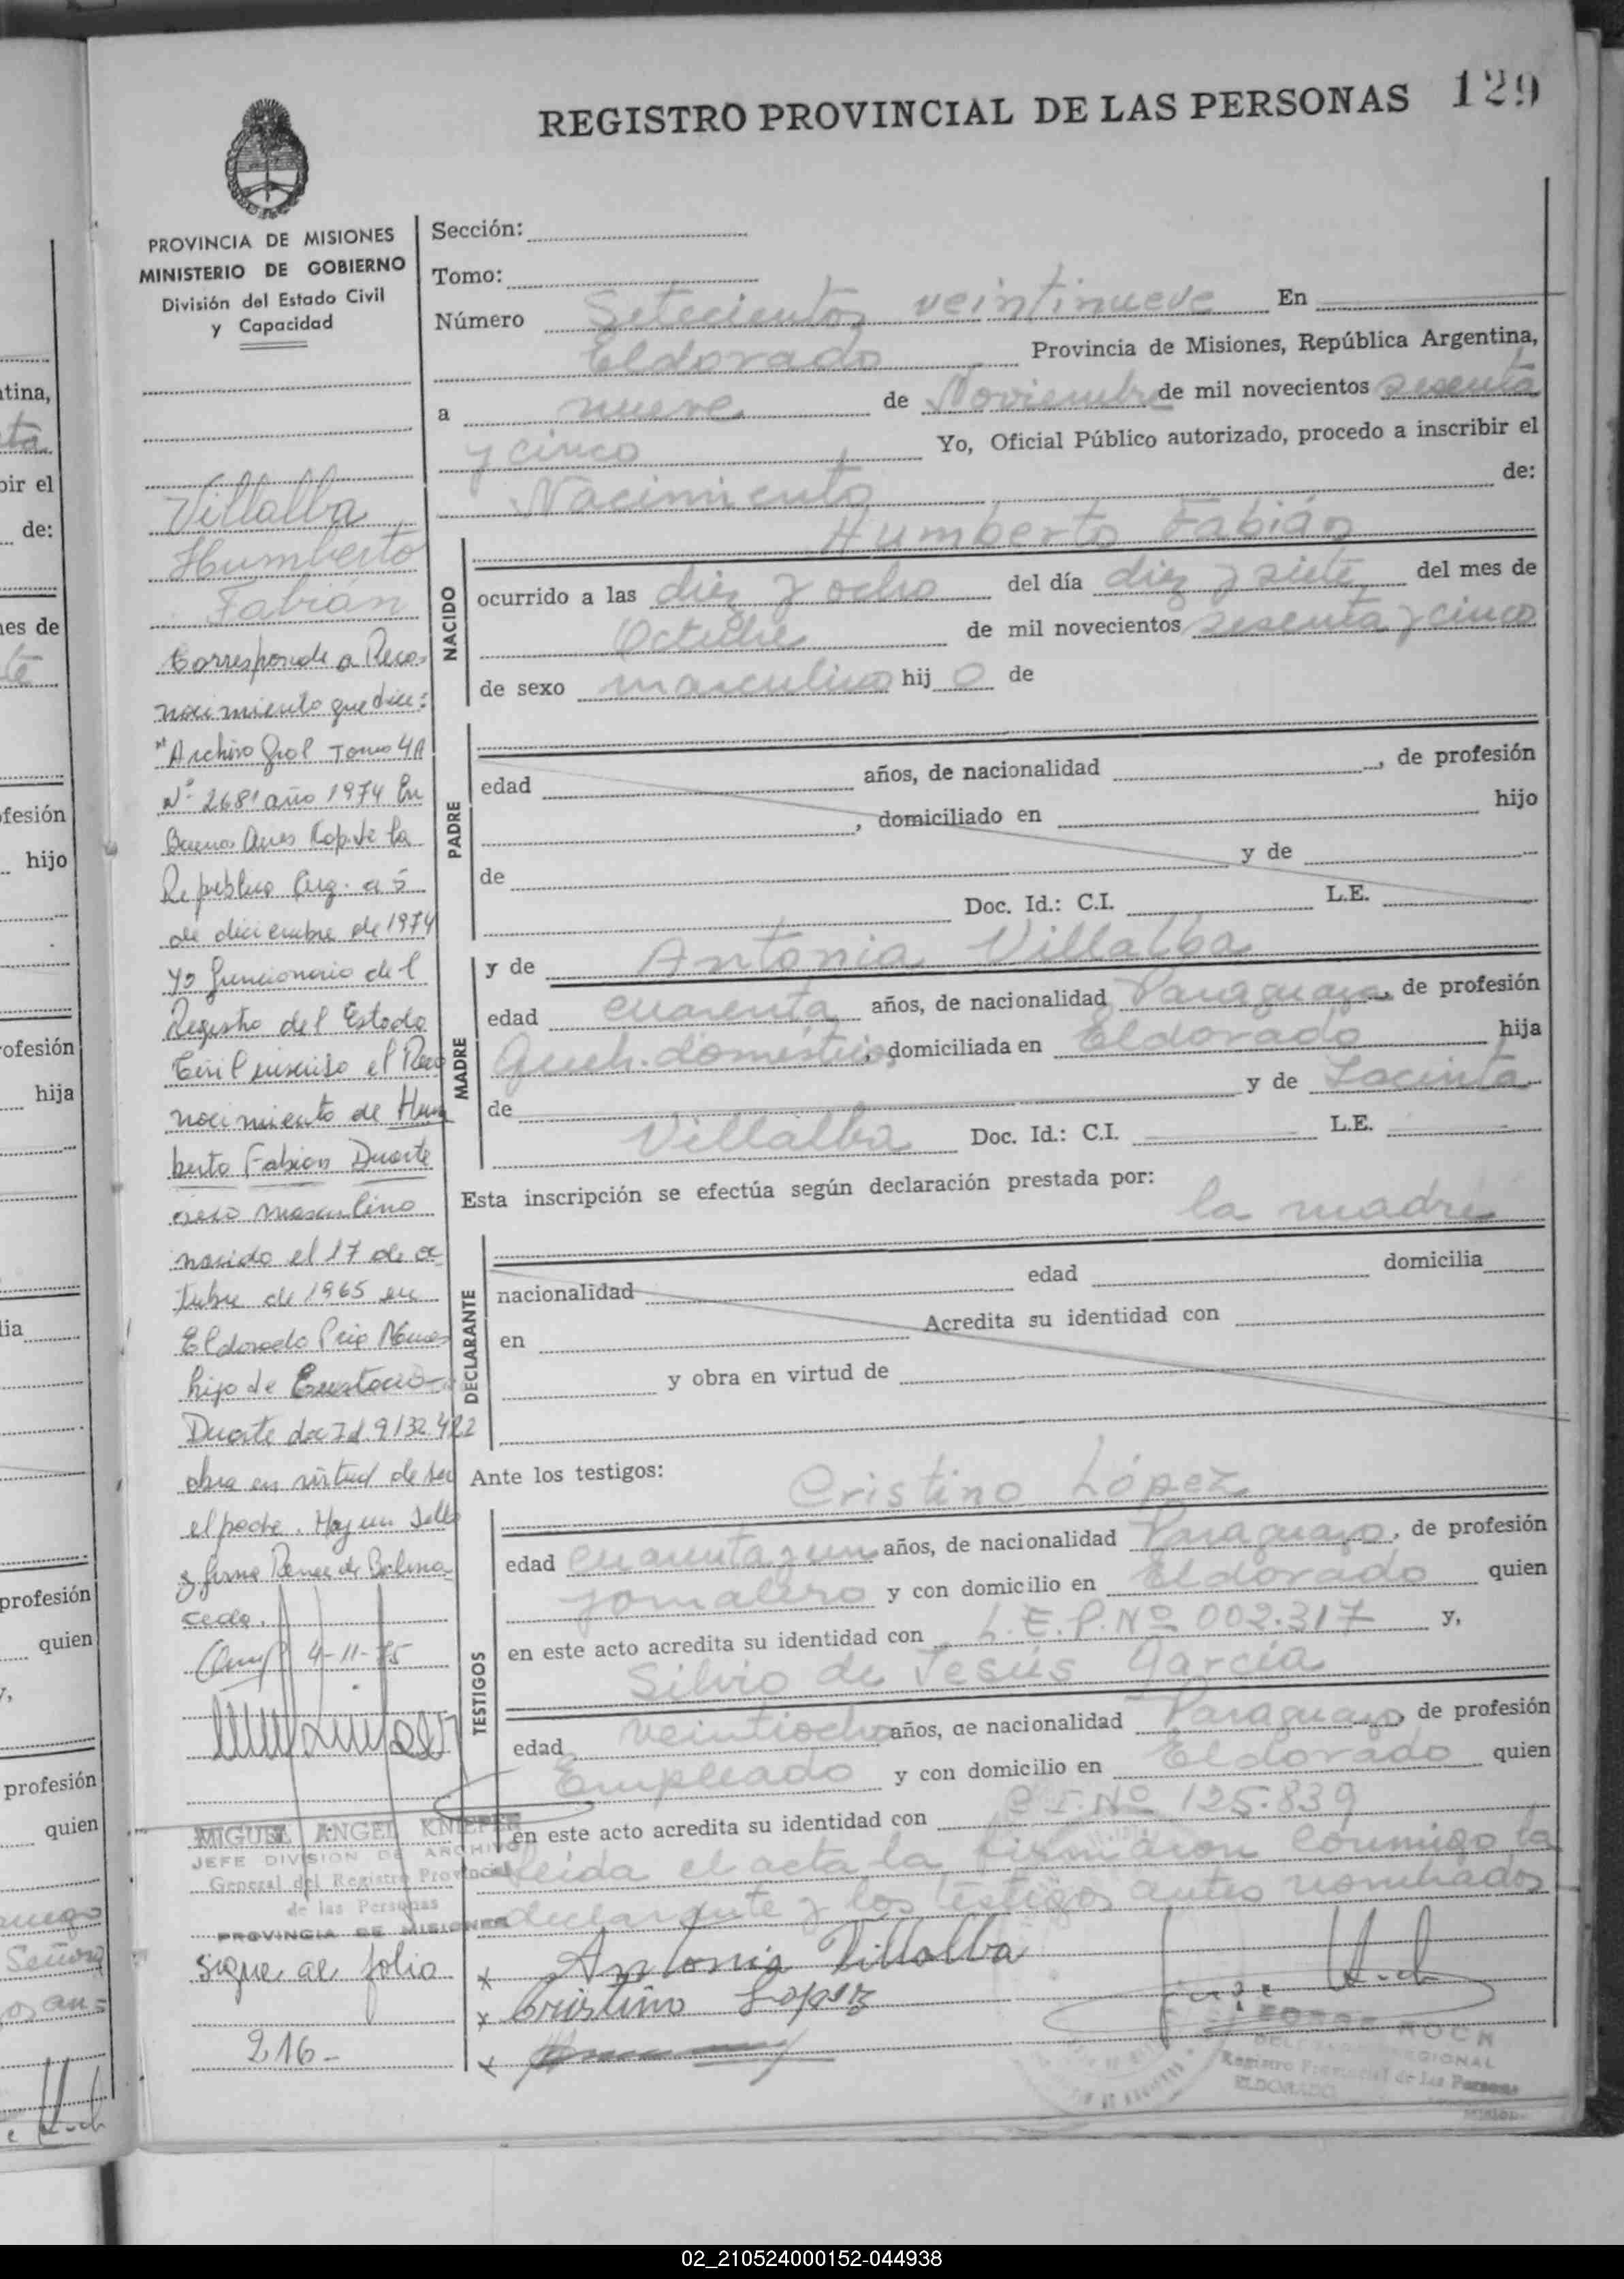 REGISTRO PROVINCIAL DE LAS PERSONAS 129
PROVINCIA DE MISIONES
MINISTERIO DE GOBIERNO
División del Estado Civil
y Capacidad
Villalba
Humberto
Fabián
Corresponde a Reco-
nocimiento que dice:
"Archivo Gral Tomo 4A
Nº 2681 año 1974 En
Buenos Aires Cap. de la
República Arg. a 5
de diciembre de 1974
Yo funcionario del
Registro del Estado
Civil inscribo el Reco
nocimiento de Hum
berto Fabian Duarte
sexo masculino
nacido el 17 de oc
tubre de 1965 en
Eldorado Pcia Nones
hijo de Eustacio
Duarte doc Id 9132.422
obra en virtud de ser
el padre. Hay un sello
y firma
4-11-75
MIGUEL ANGEL KNIEPER
JEFE DIVISION DE ARCHIVO
General del Registro Provincial
de las Personas
PROVINCIA DE MISIONES
Sigue al folio
216-
Sección:
Tomo:
Número Setecientos veintinueve En
Eldorado Provincia de Misiones, República Argentina,
a nueve de Noviembre de mil novecientos sesenta
y cinco Yo, Oficial Público autorizado, procedo a inscribir el
Nacimiento de:
Humberto Fabián
NACIDO
ocurrido a las diez y ocho del día diez y siete del mes de
Octubre de mil novecientos sesenta y cinco
de sexo masculino hij o de
PADRE
edad años, de nacionalidad , de profesión
, domiciliado en hijo
de y de
Doc. Id.: C.I. L.E.
MADRE
y de Antonia Villalba
edad cuarenta años, de nacionalidad Paraguaya, de profesión
Queh. domésticos, domiciliada en Eldorado hija
de y de Jacinta
Villalba Doc. Id.: C.I. L.E.
Esta inscripción se efectúa según declaración prestada por:
la madre
DECLARANTE
nacionalidad edad domicilia
en Acredita su identidad con
y obra en virtud de
Ante los testigos:
Cristino López
TESTIGOS
edad cuarenta y un años, de nacionalidad Paraguayo, de profesión
jornalero y con domicilio en Eldorado quien
en este acto acredita su identidad con L.E.P.Nº 002.317 y,
Silvio de Jesús García
edad veintiocho años, de nacionalidad Paraguayo, de profesión
Empleado y con domicilio en Eldorado quien
en este acto acredita su identidad con C.I.Nº 125.839
Leída el acta la firmaron conmigo la
declarante y los testigos antes nombrados
x Antonia Villalba
x Cristino Lopez
x
JORGE ROCH
DELEGADO REGIONAL
Registro Provincial de las Personas
ELDORADO
tina,
ta
bir el
de:
nes de
te
fesión
hijo
ofesión
hija
lia
profesión
quien
y,
profesión
quien
migo
Señora
os an-
02_210524000152-044938